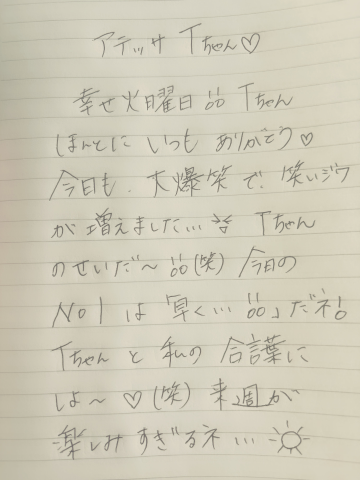 アテッサ Tちゃん♡
幸せ火曜日!! Tちゃん
ほんとに いつも ありがとう♡
今日も、大爆笑で、笑いジワ
が 増えました… Tちゃん
のせいだ〜!!(笑) 今日の
NO1は「早く…!!」だネ!
Tちゃん と 私の 合言葉に
しよ〜♡(笑) 来週が
楽しみすぎるネ…